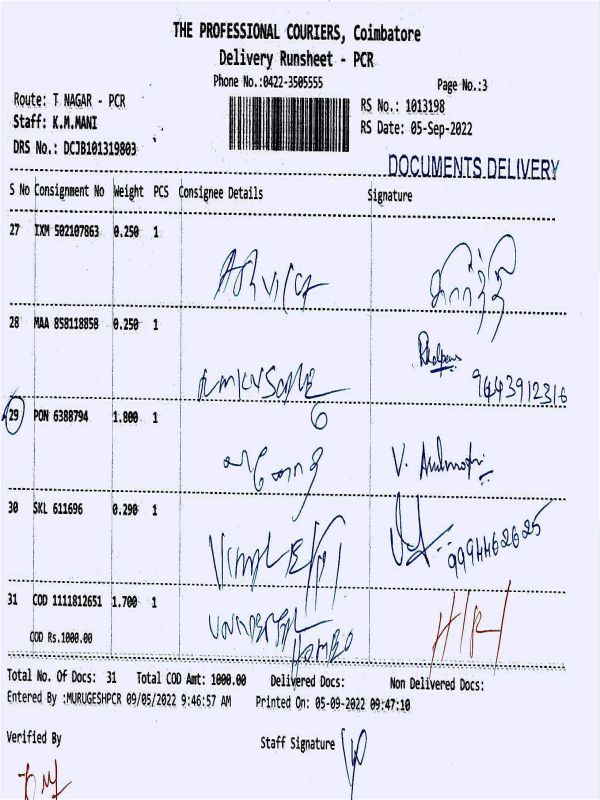 THE PROFESSIONAL COURIERS, Coimbatore
Delivery Runsheet - PCR
Phone No.:0422-3505555
Page No.:3
Route: T NAGAR - PCR
RS No.: 1013198
Staff: K.M.MANI
RS Date: 05-Sep-2022
DRS No.: DCJB101319803
DOCUMENTS.DELIVERY
S No Consignment No Weight PCS Consignee Details Signature
27 IXM 502107863 0.250 1
28 MAA 858118858 0.250 1
9443912316
29 PON 6388794 1.800 1
30 SKL 611696 0.290 1
9994462625
31 COD 1111812651 1.700 1
COD Rs.1000.00
Total No. Of Docs: 31 Total COD Amt: 1000.00 Delivered Docs: Non Delivered Docs:
Entered By :MURUGESHPCR 09/05/2022 9:46:57 AM Printed On: 05-09-2022 09:47:10
Verified By Staff Signature